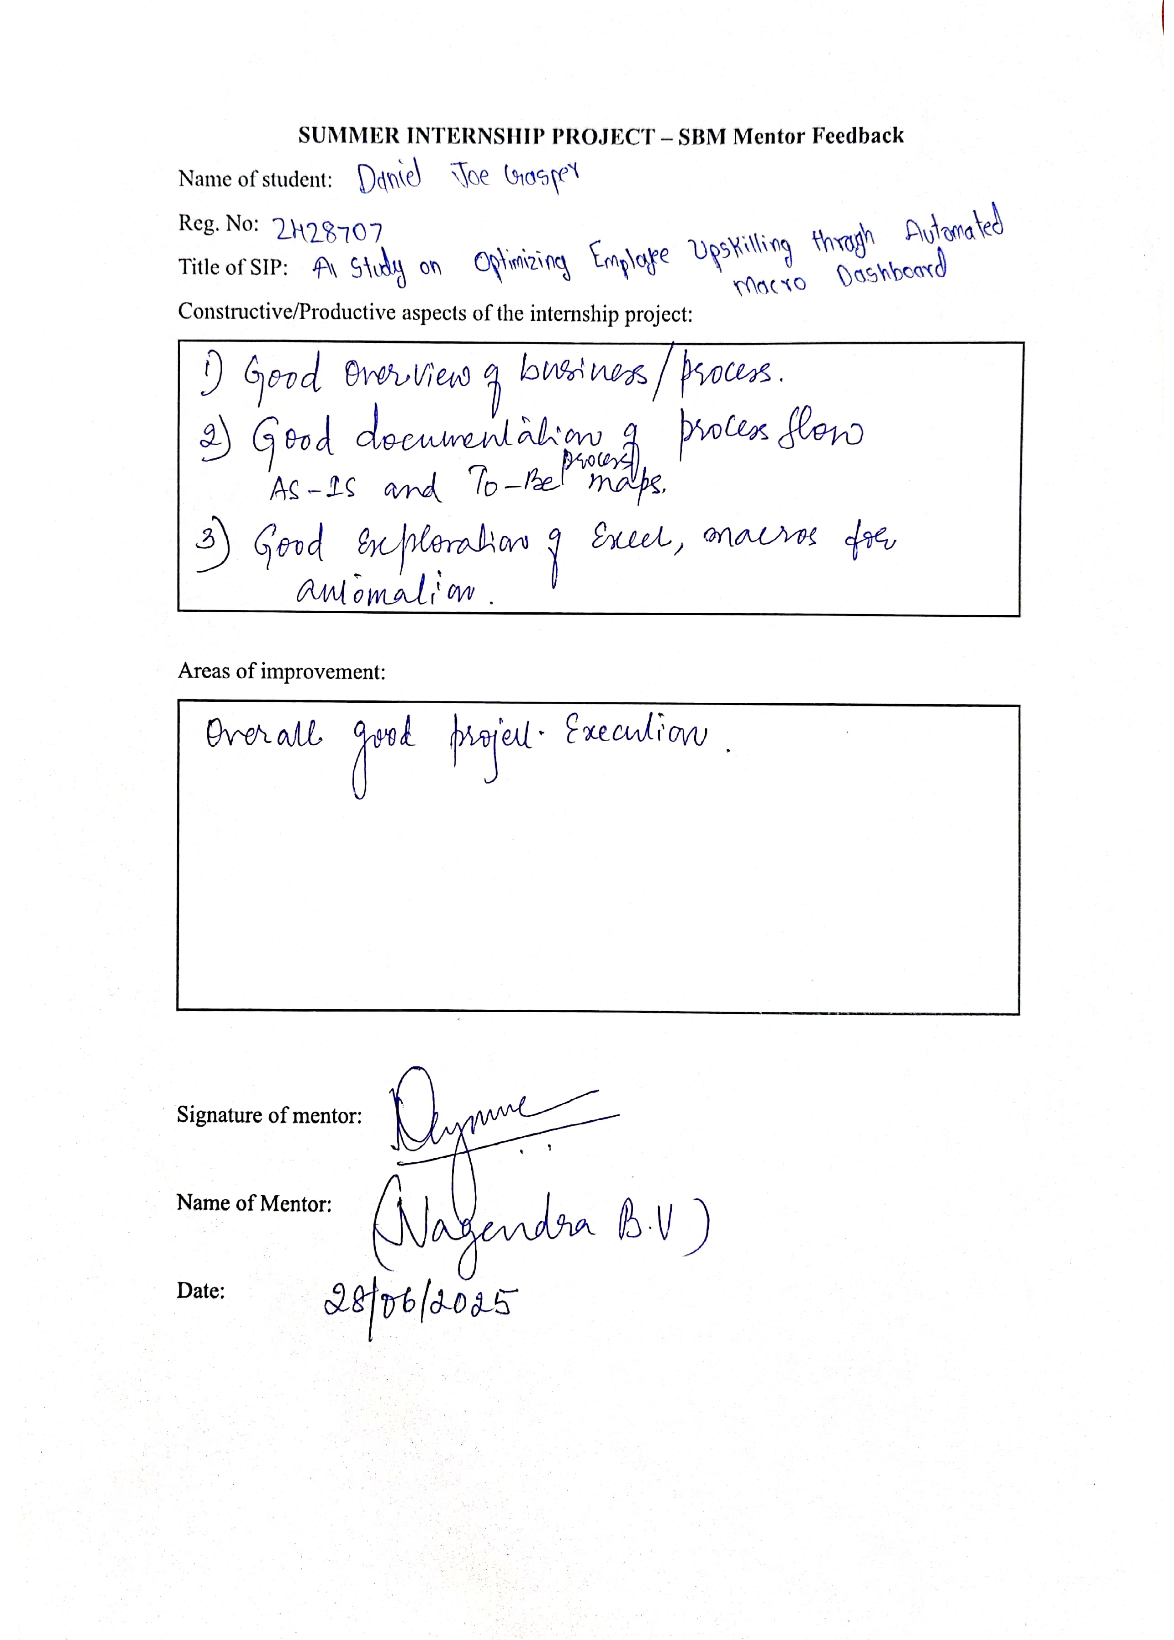 SUMMER INTERNSHIP PROJECT – SBM Mentor Feedback
Name of student: Daniel Joe Gasper
Reg. No: 2428707
Title of SIP: A Study on Optimizing Employee Upskilling through Automated
Macro Dashboard
Constructive/Productive aspects of the internship project:
1) Good Overview of business/process.
2) Good documentation of process flow
AS-IS and To-Be process maps.
3) Good Exploration of Excel, macros for
automation.
Areas of improvement:
Overall good project. Execution.
Signature of mentor:
Name of Mentor: (Nagendra B.V)
Date: 28/06/2025